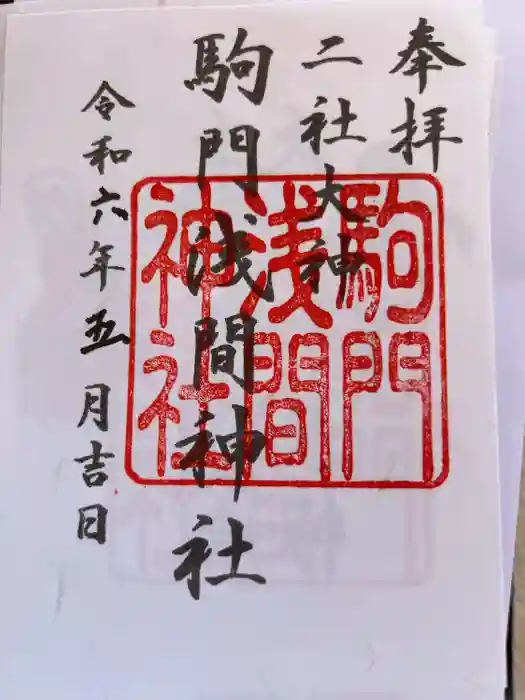 奉拝
二社大神
駒門浅間神社
令和六年五月吉日
駒門
浅間
神社